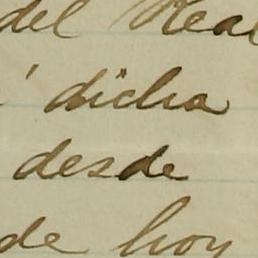 del Real
á dicha
desde
de hoy